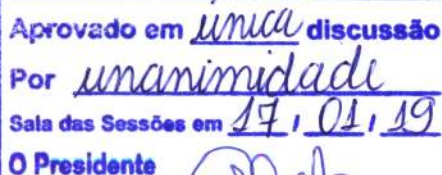 Aprovado em unica discussão
Por unanimidade
Sala das Sessões em 17 / 01 / 19
O Presidente